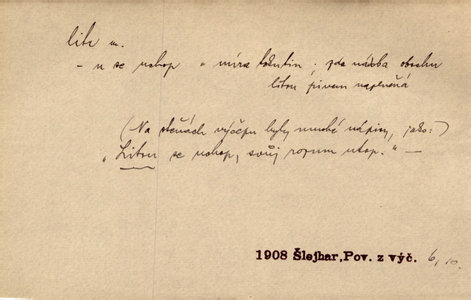 litr m.
- u se uchop " míra tekutin; zde nádoba obsahu
litru pivem naplněná
(Na stěnách výčepu byly mnohé nápisy, jako:)
"Litru se uchop, svůj rozum utop." —
1908 Šlejhar, Pov. z výč. 6, 10.